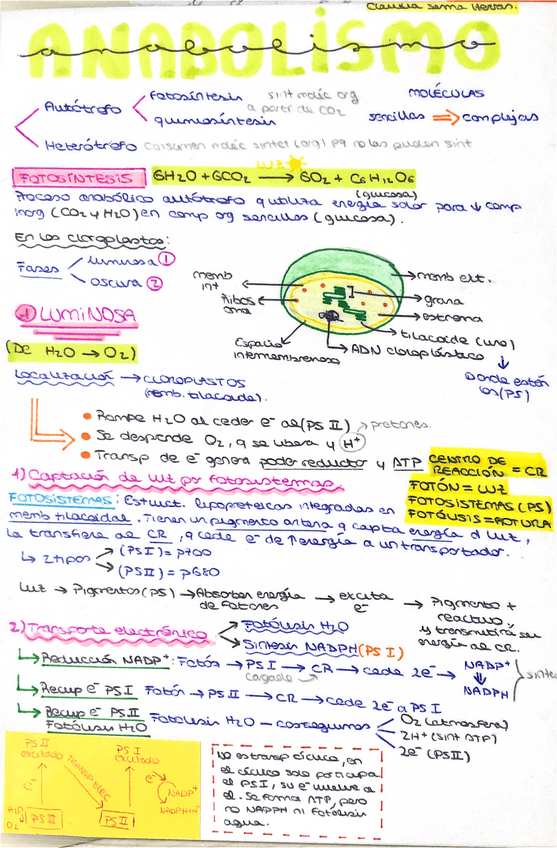 Claudia Serna Hervas.
ANABOLISMO
anabolismo
Autótrofo
fotosíntesis
quimiosíntesis
sint moléc org
a partir de CO2
MOLÉCULAS
sencillas ⇒ complejas
Heterótrofo consumen moléc sintet (org) pq no las pueden sint
luz
FOTOSÍNTESIS 6H2O + 6CO2 → 6O2 + C6H12O6
(glucosa)
Proceso anabólico autótrofo q utiliza energía solar para ↓ comp
inorg (CO2 y H2O) en comp org sencillos (glucosa).
En los cloroplastos:
Fases
luminosa ①
oscura ②
memb
int
Ribos
oma
Espacio
intermembranoso
memb ext.
grana
estroma
tilacoide (uno)
ADN cloroplástico
Donde están
los (PS)
① LUMINOSA
(DE H2O → O2)
Localización → CLOROPLASTOS
(memb. tilacoide).
• Rompe H2O al ceder e⁻ al (PS II) → protones.
• Se desprende O2, q se libera y H⁺
• Transp de e⁻ genera poder reductor y ATP
CENTRO DE
REACCIÓN = CR
FOTÓN = LUZ
FOTOSISTEMAS (PS)
FOTÓLISIS = ROTURA
1) Captación de luz por fotosistemas
FOTOSISTEMAS: Estruct. lipoproteicas integradas en
memb tilacoidal. Tienen un pigmento antena q capta energía d luz,
la transfiere al CR, q cede e⁻ de ↑ energía a un transportador.
↳ 2 tipos
(PS I) = P700
(PS II) = P680
Luz → Pigmentos (PS) → Absorber energía
de fotones
→ excita
e⁻
→ Pigmento +
reactivo,
y transmitirá su
energía al CR.
2) Transporte electrónico
Fotólisis H2O
Síntesis NADPH (PS I)
↳ Reducción NADP⁺: Fotón → PS I → CR → cede 2e⁻ → NADP⁺
cargado
↓
NADPH
↳ Recup e⁻ PS I Fotón → PS II → CR → cede 2e⁻ a PS I
↳ Recup e⁻ PS II
Fotólisis H2O
Fotólisis H2O – conseguimos
O2 (atmósfera)
2H⁺ (sint ATP)
2e⁻ (PS II)
PS II
excitado
PS I
excitado
TRANSP ELEC
e⁻
e⁻
NADP⁺
NADPH+H⁺
H2O
O2
PS II
PS II
No es transp cíclico, en
el cíclico solo participa
el PS I, su e⁻ vuelve a
él. Se forma ATP, pero
no NADPH ni fotólisis
agua.